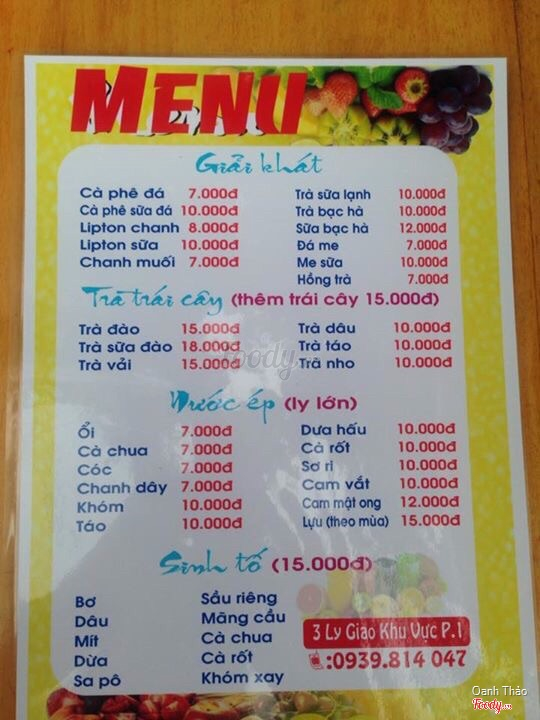 MENU
Giải khát
Cà phê đá 7.000đ
Cà phê sữa đá 10.000đ
Lipton chanh 8.000đ
Lipton sữa 10.000đ
Chanh muối 7.000đ
Trà sữa lạnh 10.000đ
Trà bạc hà 10.000đ
Sữa bạc hà 12.000đ
Đá me 7.000đ
Me sữa 10.000đ
Hồng trà 7.000đ
Trà trái cây (thêm trái cây 15.000đ)
Trà đào 15.000đ
Trà sữa đào 18.000đ
Trà vải 15.000đ
Trà dâu 10.000đ
Trà táo 10.000đ
Trà nho 10.000đ
foody.vn
Nước ép (ly lớn)
Ổi 7.000đ
Cà chua 7.000đ
Cóc 7.000đ
Chanh dây 7.000đ
Khóm 10.000đ
Táo 10.000đ
Dưa hấu 10.000đ
Cà rốt 10.000đ
Sơ ri 10.000đ
Cam vắt 10.000đ
Cam mật ong 12.000đ
Lựu (theo mùa) 15.000đ
Sinh tố (15.000đ)
Bơ
Dâu
Mít
Dừa
Sa pô
Sầu riêng
Mãng cầu
Cà chua
Cà rốt
Khóm xay
3 Lý Giao Khu Vực P.1
:0939.814 047
Oanh Thảo
Foody.vn